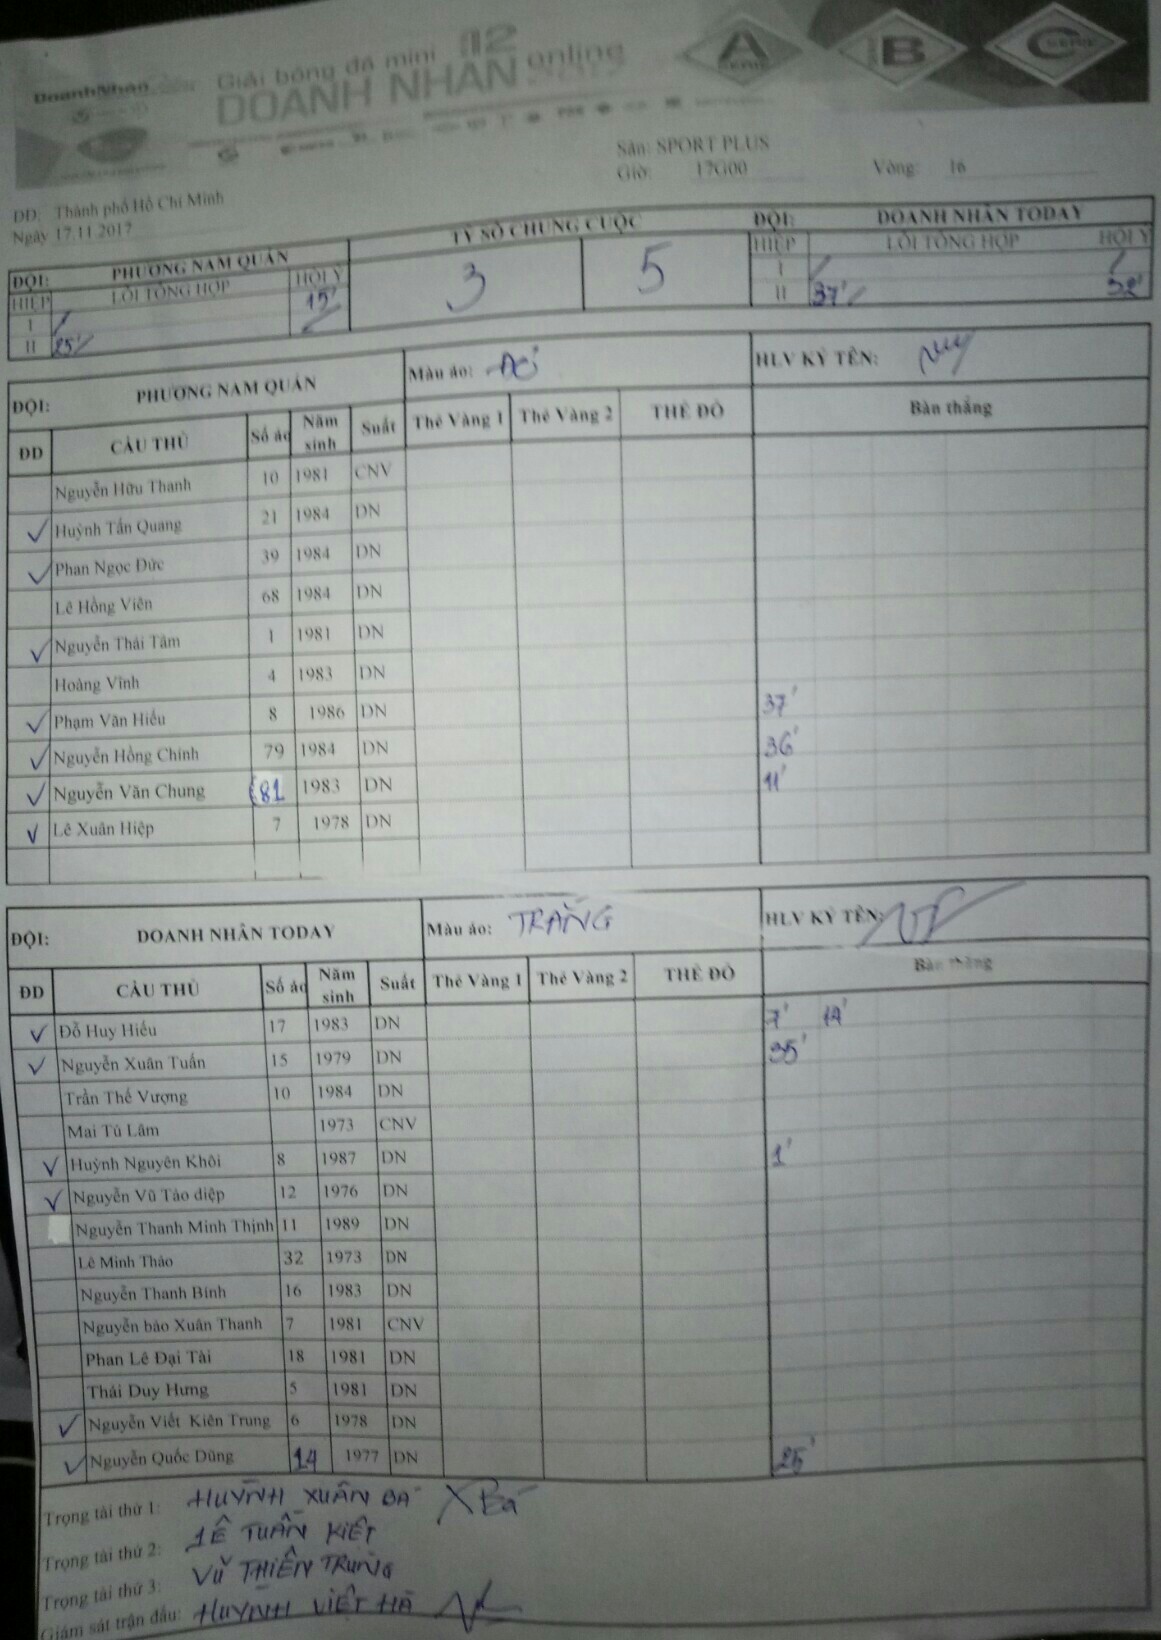 DoanhNhan
Giải bóng đá mini 12 online
DOANH NHÂN
A B C
Sân: SPORT PLUS
Giờ: 17G00 Vòng: 16
DD: Thành phố Hồ Chí Minh
Ngày 17.11.2017
ĐỘI: PHƯƠNG NAM QUÁN TỶ SỐ CHUNG CUỘC ĐỘI: DOANH NHÂN TODAY
HIỆP LỖI TỔNG HỢP HỘI Ý 3 5 HIỆP LỖI TỔNG HỢP HỘI Ý
I 15' I
II 25' II 37' 32'
ĐỘI: PHƯƠNG NAM QUÁN Màu áo: HLV KÝ TÊN:
ĐD CẦU THỦ Số áo Năm sinh Suất Thẻ Vàng 1 Thẻ Vàng 2 THẺ ĐỎ Bàn thắng
Nguyễn Hữu Thanh 10 1981 CNV
✓ Huỳnh Tấn Quang 21 1984 DN
✓ Phan Ngọc Đức 39 1984 DN
Lê Hồng Viên 68 1984 DN
✓ Nguyễn Thái Tâm 1 1981 DN
Hoàng Vĩnh 4 1983 DN
✓ Phạm Văn Hiếu 8 1986 DN 37'
✓ Nguyễn Hồng Chính 79 1984 DN 36'
✓ Nguyễn Văn Chung 81 1983 DN 11'
✓ Lê Xuân Hiệp 7 1978 DN
ĐỘI: DOANH NHÂN TODAY Màu áo: TRẮNG HLV KÝ TÊN:
ĐD CẦU THỦ Số áo Năm sinh Suất Thẻ Vàng 1 Thẻ Vàng 2 THẺ ĐỎ Bàn thắng
✓ Đỗ Huy Hiếu 17 1983 DN 7' 14'
✓ Nguyễn Xuân Tuấn 15 1979 DN 35'
Trần Thế Vượng 10 1984 DN
Mai Tú Lâm 1973 CNV
✓ Huỳnh Nguyên Khôi 8 1987 DN 1'
✓ Nguyễn Vũ Táo điệp 12 1976 DN
Nguyễn Thanh Minh Thịnh 11 1989 DN
Lê Minh Thảo 32 1973 DN
Nguyễn Thanh Bính 16 1983 DN
Nguyễn bảo Xuân Thanh 7 1981 CNV
Phan Lê Đại Tài 18 1981 DN
Thái Duy Hưng 5 1981 DN
✓ Nguyễn Viết Kiên Trung 6 1978 DN
✓ Nguyễn Quốc Dũng 14 1977 DN 25'
Trọng tài thứ 1: HUỲNH XUÂN BÁ XBá
Trọng tài thứ 2: LÊ TUẤN KIỆT
Trọng tài thứ 3: VŨ THIÊN TRUNG
Giám sát trận đấu: HUỲNH VIỆT HÀ